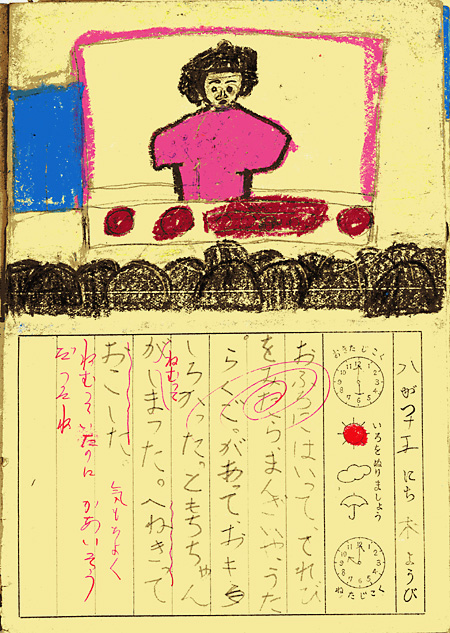 八がつ にち 木ようび
おきたじこく
いろをぬりましょう
ねたじこく
おふろに はいって、てれび
らまんざいやうた
らくご、があってお
しろかった。ともちゃん
がしまった。
ねむって
おこした。
気もちよく
ねむっていたのに かあいそう
だったね